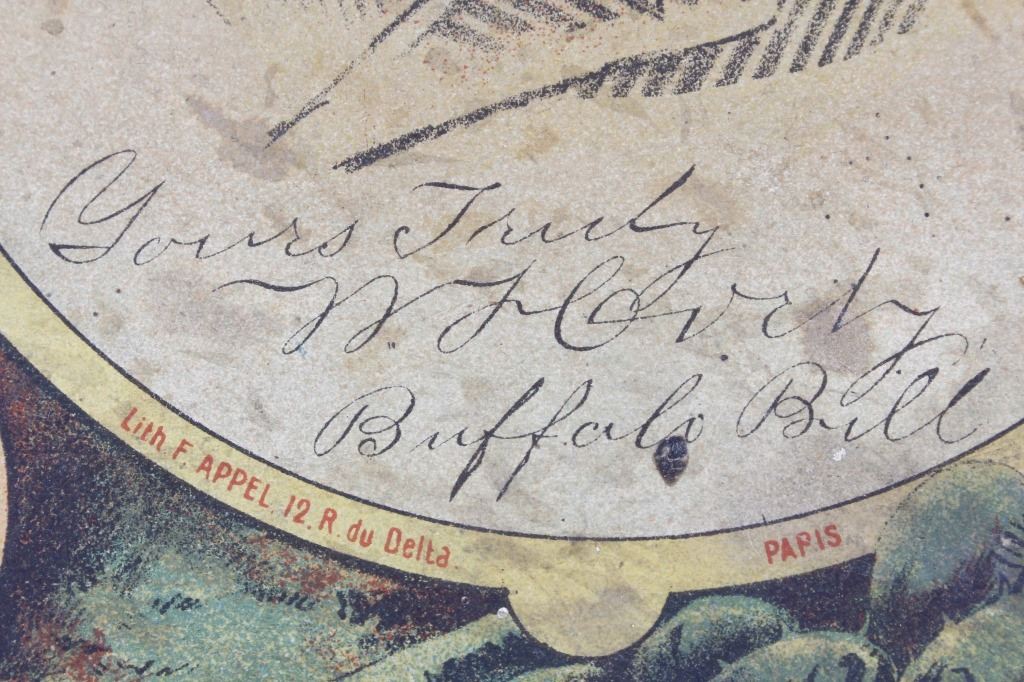 Yours Truly
W. F. Cody
Buffalo Bill
Lith. F. APPEL. 12. R. du Delta.
PARIS